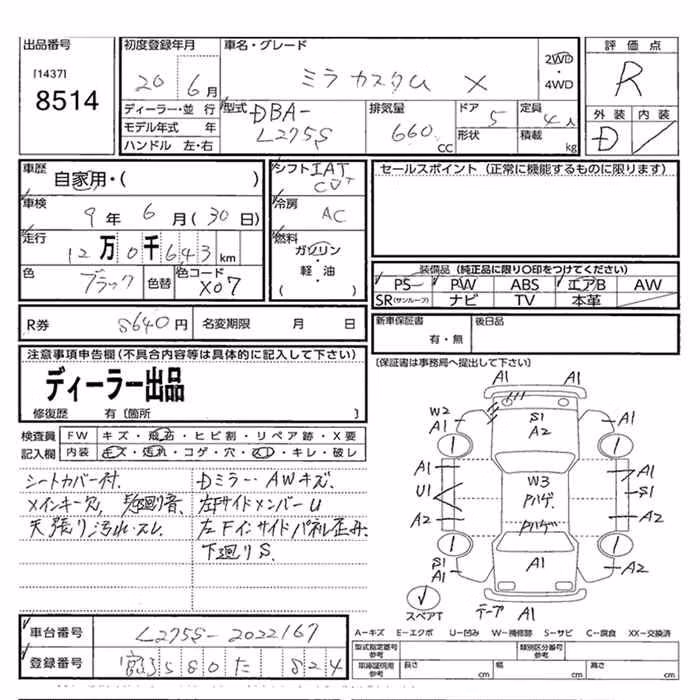 出品番号
[1437]
8514
初度登録年月
20 6月
車名・グレード
ミラ カスタム X
2WD
4WD
評価点
R
外装 内装
D
ディーラー・並行
モデル年式 年
ハンドル 左・右
型式
DBA-
L275S
排気量
660
CC
ドア
5
形状
定員
4人
積載
kg
車歴
自家用・( )
車検
9年 6月 (30日)
走行
12万0千643km
色
ブラック
色替
色コード
X07
シフト IAT
CVT
冷房
AC
燃料
ガソリン
・
軽・油
( )
セールスポイント (正常に機能するものに限ります)
装備品 (純正品に限り〇印をつけてください)
PS PW ABS エアB AW
SR(サンルーフ) ナビ TV 本革
R券 8640円 名変期限 月 日
新車保証書
有・無
後日品
[保証書は事務局へ提出して下さい]
注意事項申告欄 (不具合内容等は具体的に記入して下さい)
ディーラー出品
修復歴 有 [箇所 ]
検査員
記入欄
FW キズ・飛石・ヒビ割・リペア跡・X要
内装 キズ・汚れ・コゲ・穴・スレ・キレ・破レ
シートカバー付.
メインキー欠,
天張り汚れ・スレ
Dミラー・AWキズ.
左サイドメンバーU
左Fインサイドパネル歪み.
下廻りS.
A1 A1
W2
A1
S1
A2
A1
A1
U1
A2
W3
Pハゲ
Pハゲ
A1
S1
A2
S1
A1
A1
A1
スペアT
テープ A1
車台番号 L275S-2022167
登録番号 580 た 824
A-キズ E-エクボ U-凹み W-補修跡 S-サビ C-腐食 XX-交換済
型式指定番号
参考
類別区分番号
参考
車庫証明用
参考
長さ cm 幅 cm 高さ cm